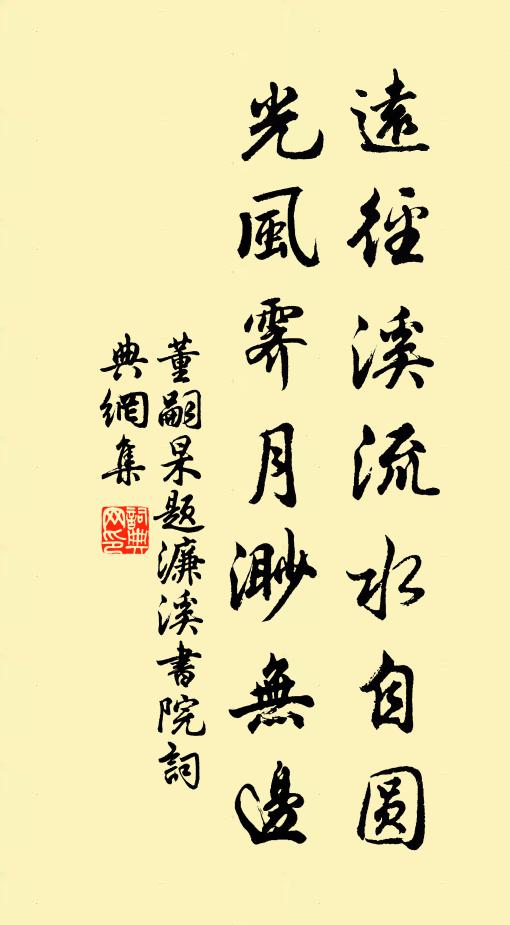 遠徑溪流水自圆
光風霽月渺無邊
董嗣杲题濂溪書院詞
典網集
詞典
网印